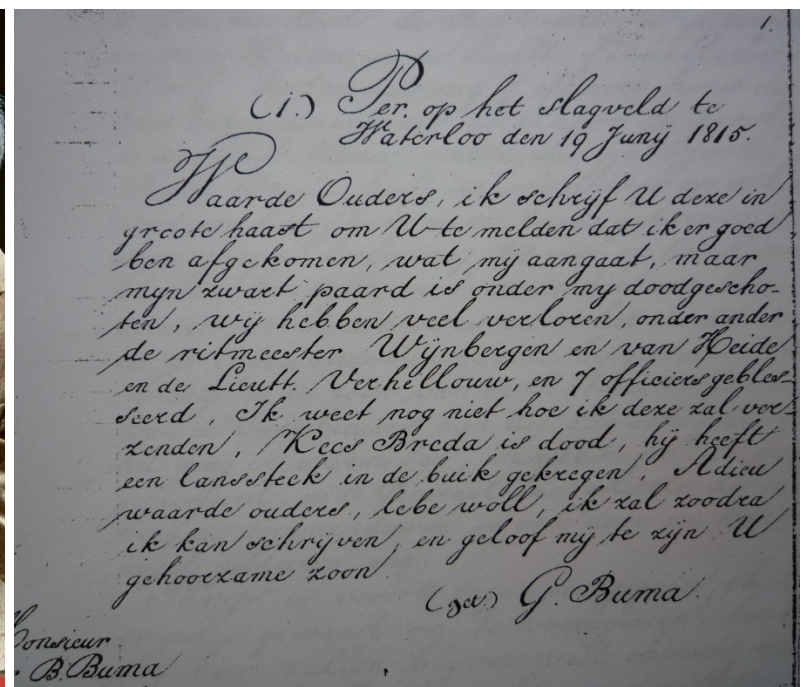 1.
(i.) Per. op het slagveld te
Waterloo den 19 Junÿ 1815.
Waarde Ouders, ik schrijf U deze in
groote haast om U te melden dat ik er goed
ben afgekomen, wat mÿ aangaat, maar
myn zwart paard is onder my doodgescho-
ten, wÿ hebben veel verloren, onder ander
de ritmeester Wÿnbergen en van Heide
en de Lieutt. Verhellouw, en 7 officiers gebles-
seerd, Ik weet nog niet hoe ik deze zal ver-
zenden, Kees Breda is dood, hÿ heeft
een lanssteek in de buik gekregen, Adieu
waarde ouders, lebe woll, ik zal zoodra
ik kan schrÿven, en geloof mÿ te zÿn U
gehoorzame zoon
(get.) G. Buma.
Monsieur
B. Buma